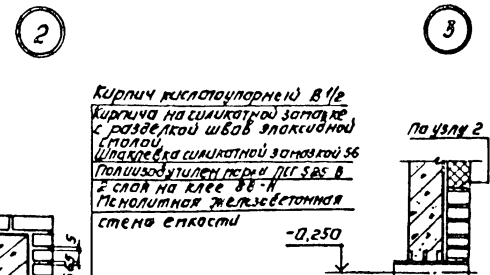 2
3
Кирпич кислотоупорный В 1/2
Кирпича на силикатной замазке
с разделкой швов эпоксидной
смолой
Шпаклевка силикатной замазкой 5б
Полиизобутилен марки ПСГ 585 В
2 слоя на клее 88-Н
Монолитная железобетонная
стена емкости
По узлу 2
-0,250
5